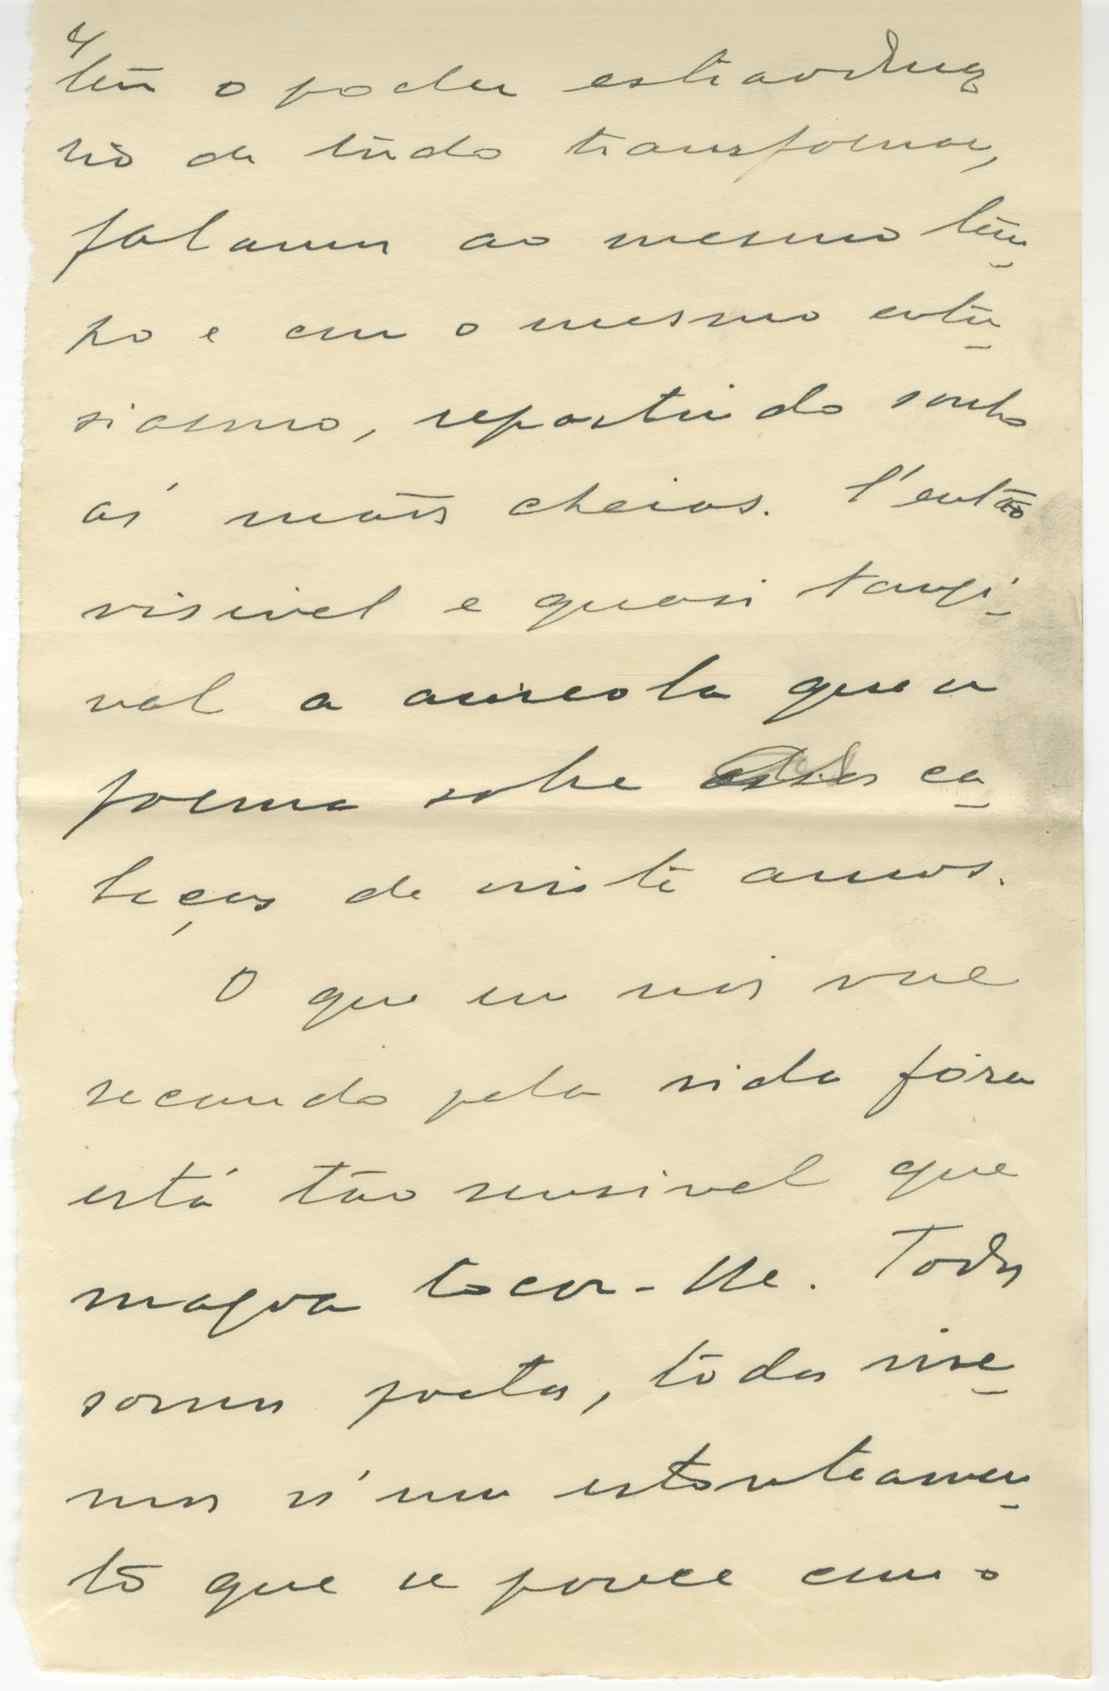 4
têm o poder estraordina
rio de tudo transformar,
falamos ao mesmo tem_
po e com o mesmo entu_
siasmo, repartindo sonho
ás mãos cheias. E' então
visivel e quasi tangi_
vel a aureola que se
forma sobre essas ca_
beças de vinte annos.
O que em nós vive
recuado pela vida fóra
está tão sensivel que
magoa tocar-lhe. Todos
somos poetas, todos vive_
mos n'um estonteamen_
to que se parece com o